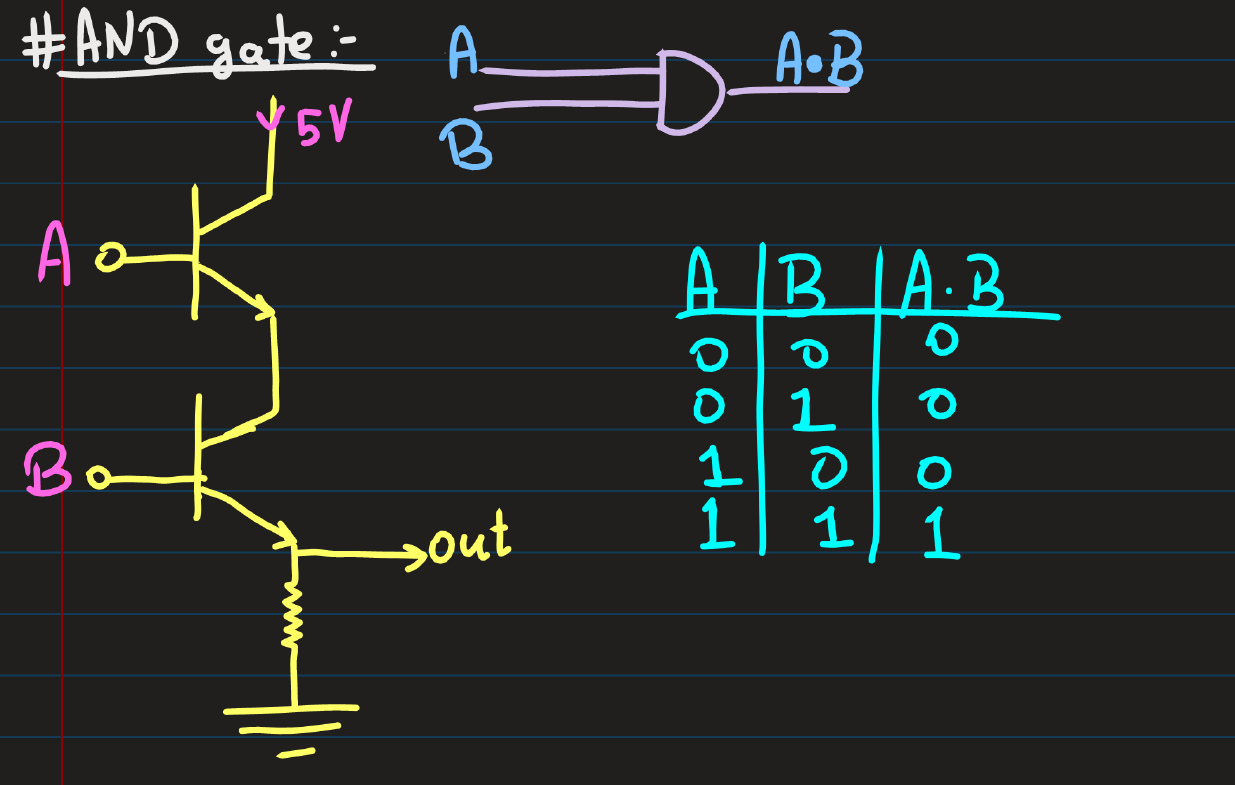 #AND gate:-
A
A•B
B
5V
A
B
out
A B A.B
0 0 0
0 1 0
1 0 0
1 1 1